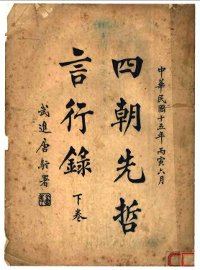 中華民國十五年丙寅六月
四朝先哲
言行錄
下卷
武進唐駝署